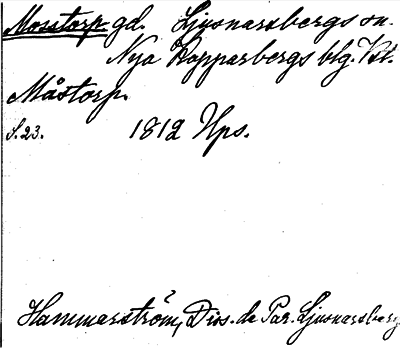 Mosstorp. gd. Ljusnarsbergs sn.
Nya Kopparbergs blg. Vstl.
Måstorp.
S. 23. 1812 Ups.
Hammarström, Diss. de Par. Ljusnarsberg